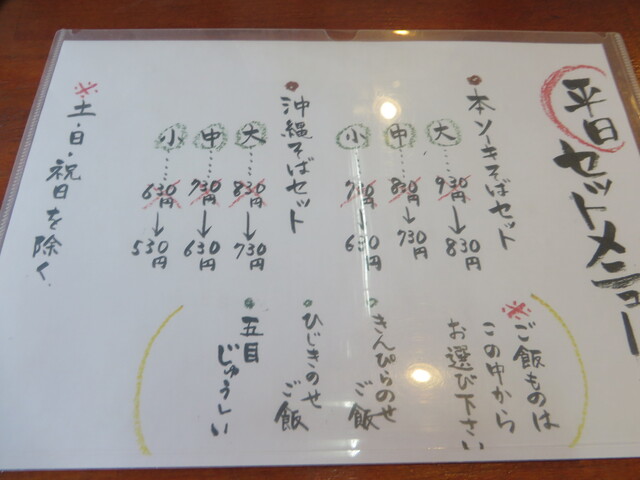 平日セットメニュー
●本ソーキそばセット
大……930円→830円
中……830円→730円
小……730円→630円
●沖縄そばセット
大……830円→730円
中……730円→630円
小……630円→530円
※土・日・祝日を除く
※ご飯ものは
この中から
お選び下さい
●きんぴらのせご飯
●ひじきのせご飯
●五目じゅうしい